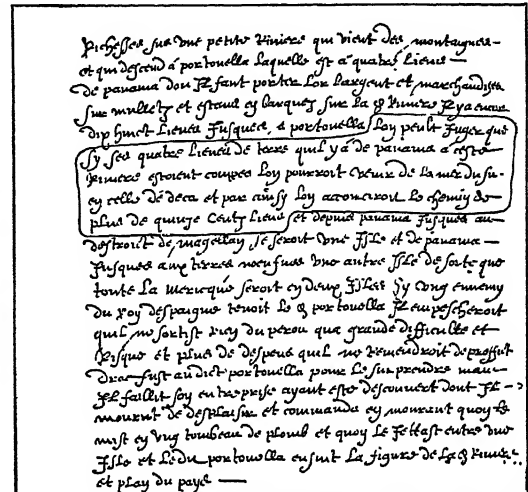 Richesses sur une petite Riviere qui vient des montaignes
et qui descend a portouella laquelle est a quatre lieues
de panama dou Il fault porter lor largent et marchandises
sur mulletz et estans es barques sur la d Riviere Il y a encore
dix huict lieues Jusques a portouella Lon peult Juger que
sy ses quatre lieues de terre quil y a de panama a ceste
Riviere estoient coupes lon pourroit venir de la mer du su
en celle de deca et par ainsy lon acourciroit le chemin de
plus de quinze centz lieues et depuis panama Jusques au
destroit de magellan se seroit une Isle et de panama
Jusques aux terres neufues une autre Isle de sorte que
toute la mericque seroit en deux Isles Sy ung ennemy
du roy despaigne tenoit le d portouella Il empescheroit
quil ne sortist rien du perou qua grande difficulte et
Risque et plus de despens quil ne reviendroit de proffit
drac fust audict portouella pour le surprendre mais
Il faillit son entreprise ayant este descouvert dont Il
mourut de desplaisir et commanda en mourant quon le
mist en ung tombeau de plomb et quon le Jettast entre une
Isle et le du portouella ensuit la figure de la d Riviere
et plan du pays